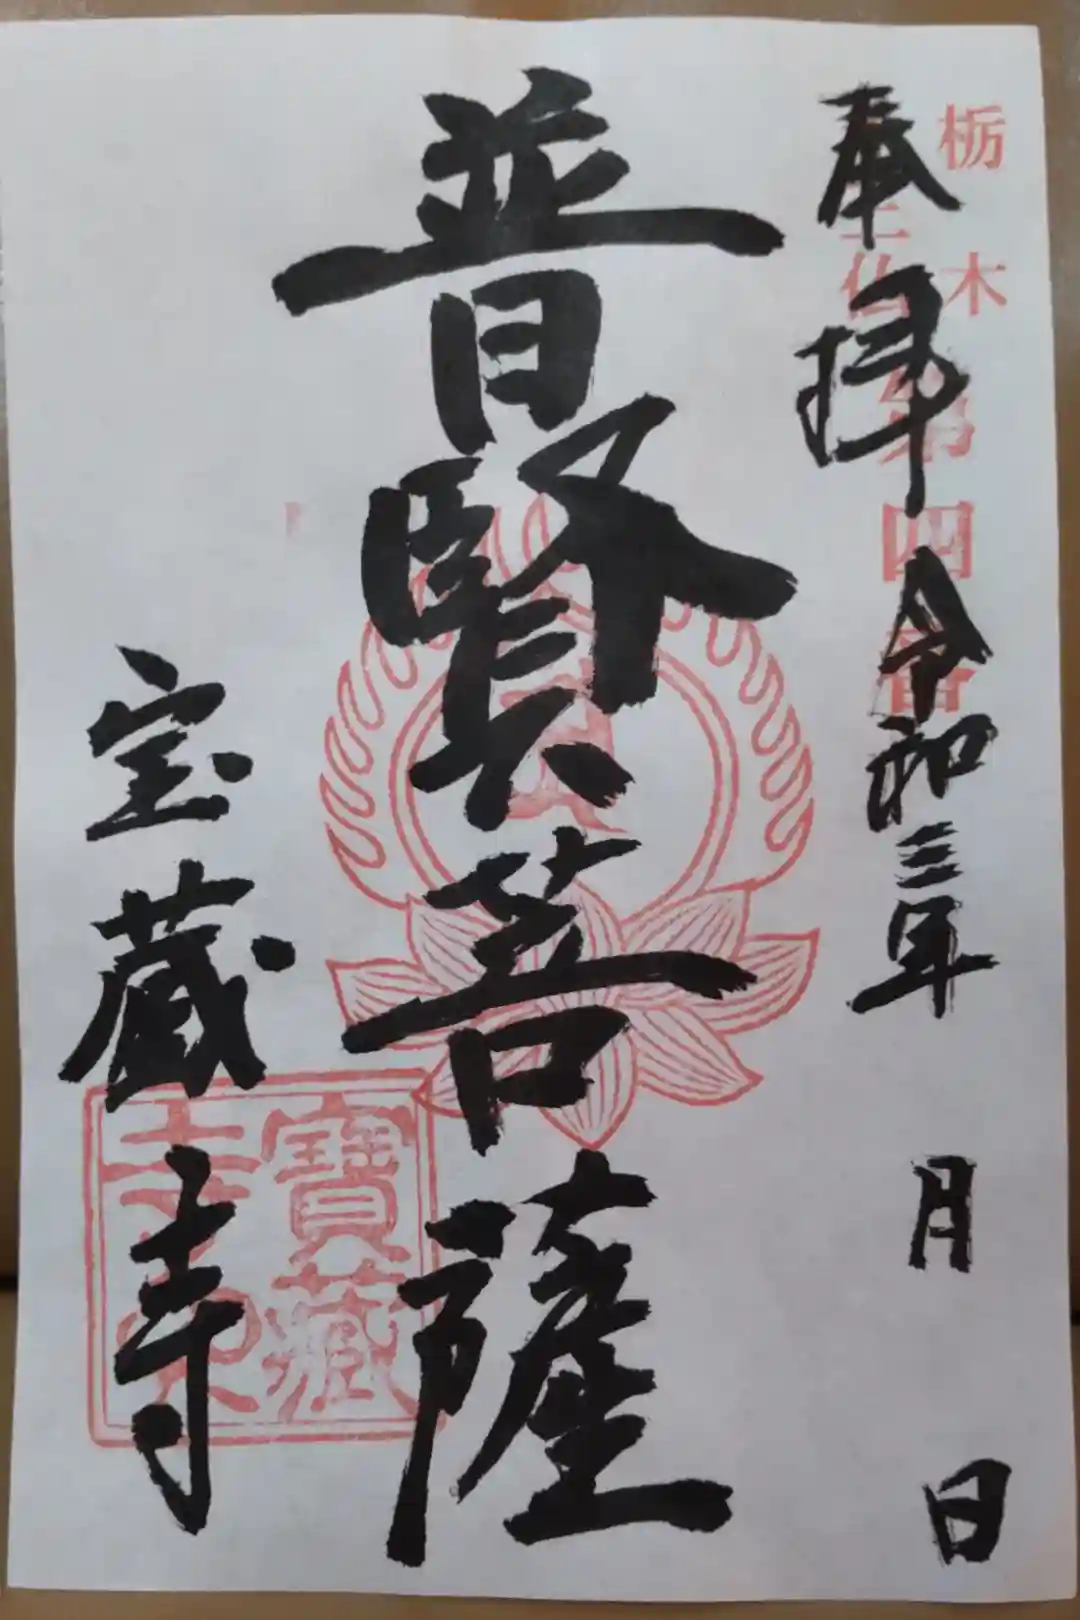 栃木
三仏
第四番
奉拝
令和三年 月 日
普賢菩薩
宝蔵寺
寶藏
寺